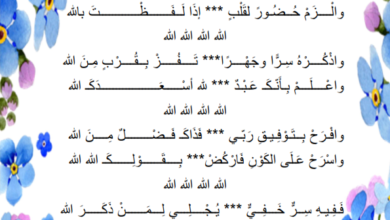 والْـزَمْ حُـضُـورْ لقَلْـبٍ *** إذَا لَـفَـظْـتَ بالله
الله الله الله الله
واذْكُـرْهُ سِـرًّا وجَهْـرَا *** تَـفُـزْ بِـقُـرْبٍ مِنَ الله
واعْـلَـمْ بِـأَنَّـكَـ عَبْدٌ *** لله أسْـعَـدَكَـ الله
الله الله الله الله
وافْـرَحْ بِـتَـوْفِـيقِ رَبّـي *** فَذَاكَـ فَـضْـلٌ مِـنَ الله
واسْرَحْ عَلَى الكَوْنِ فَارْكُضْ *** بِـقَـوْلِـكَـ الله الله
الله الله الله الله
فَفِيهِ سِـرٌّ خَـفِـيٌّ *** يُجْلِـي لِمَـنْ ذَكَـرَ الله